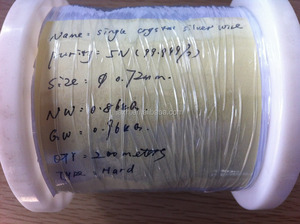 Name: Single crystal silver wire
Purity: 5N (99.999%)
Size: φ 0.72mm.
NW: 0.86KG.
G.W: 0.96KG.
QTY: 200 meters
Type: Hard